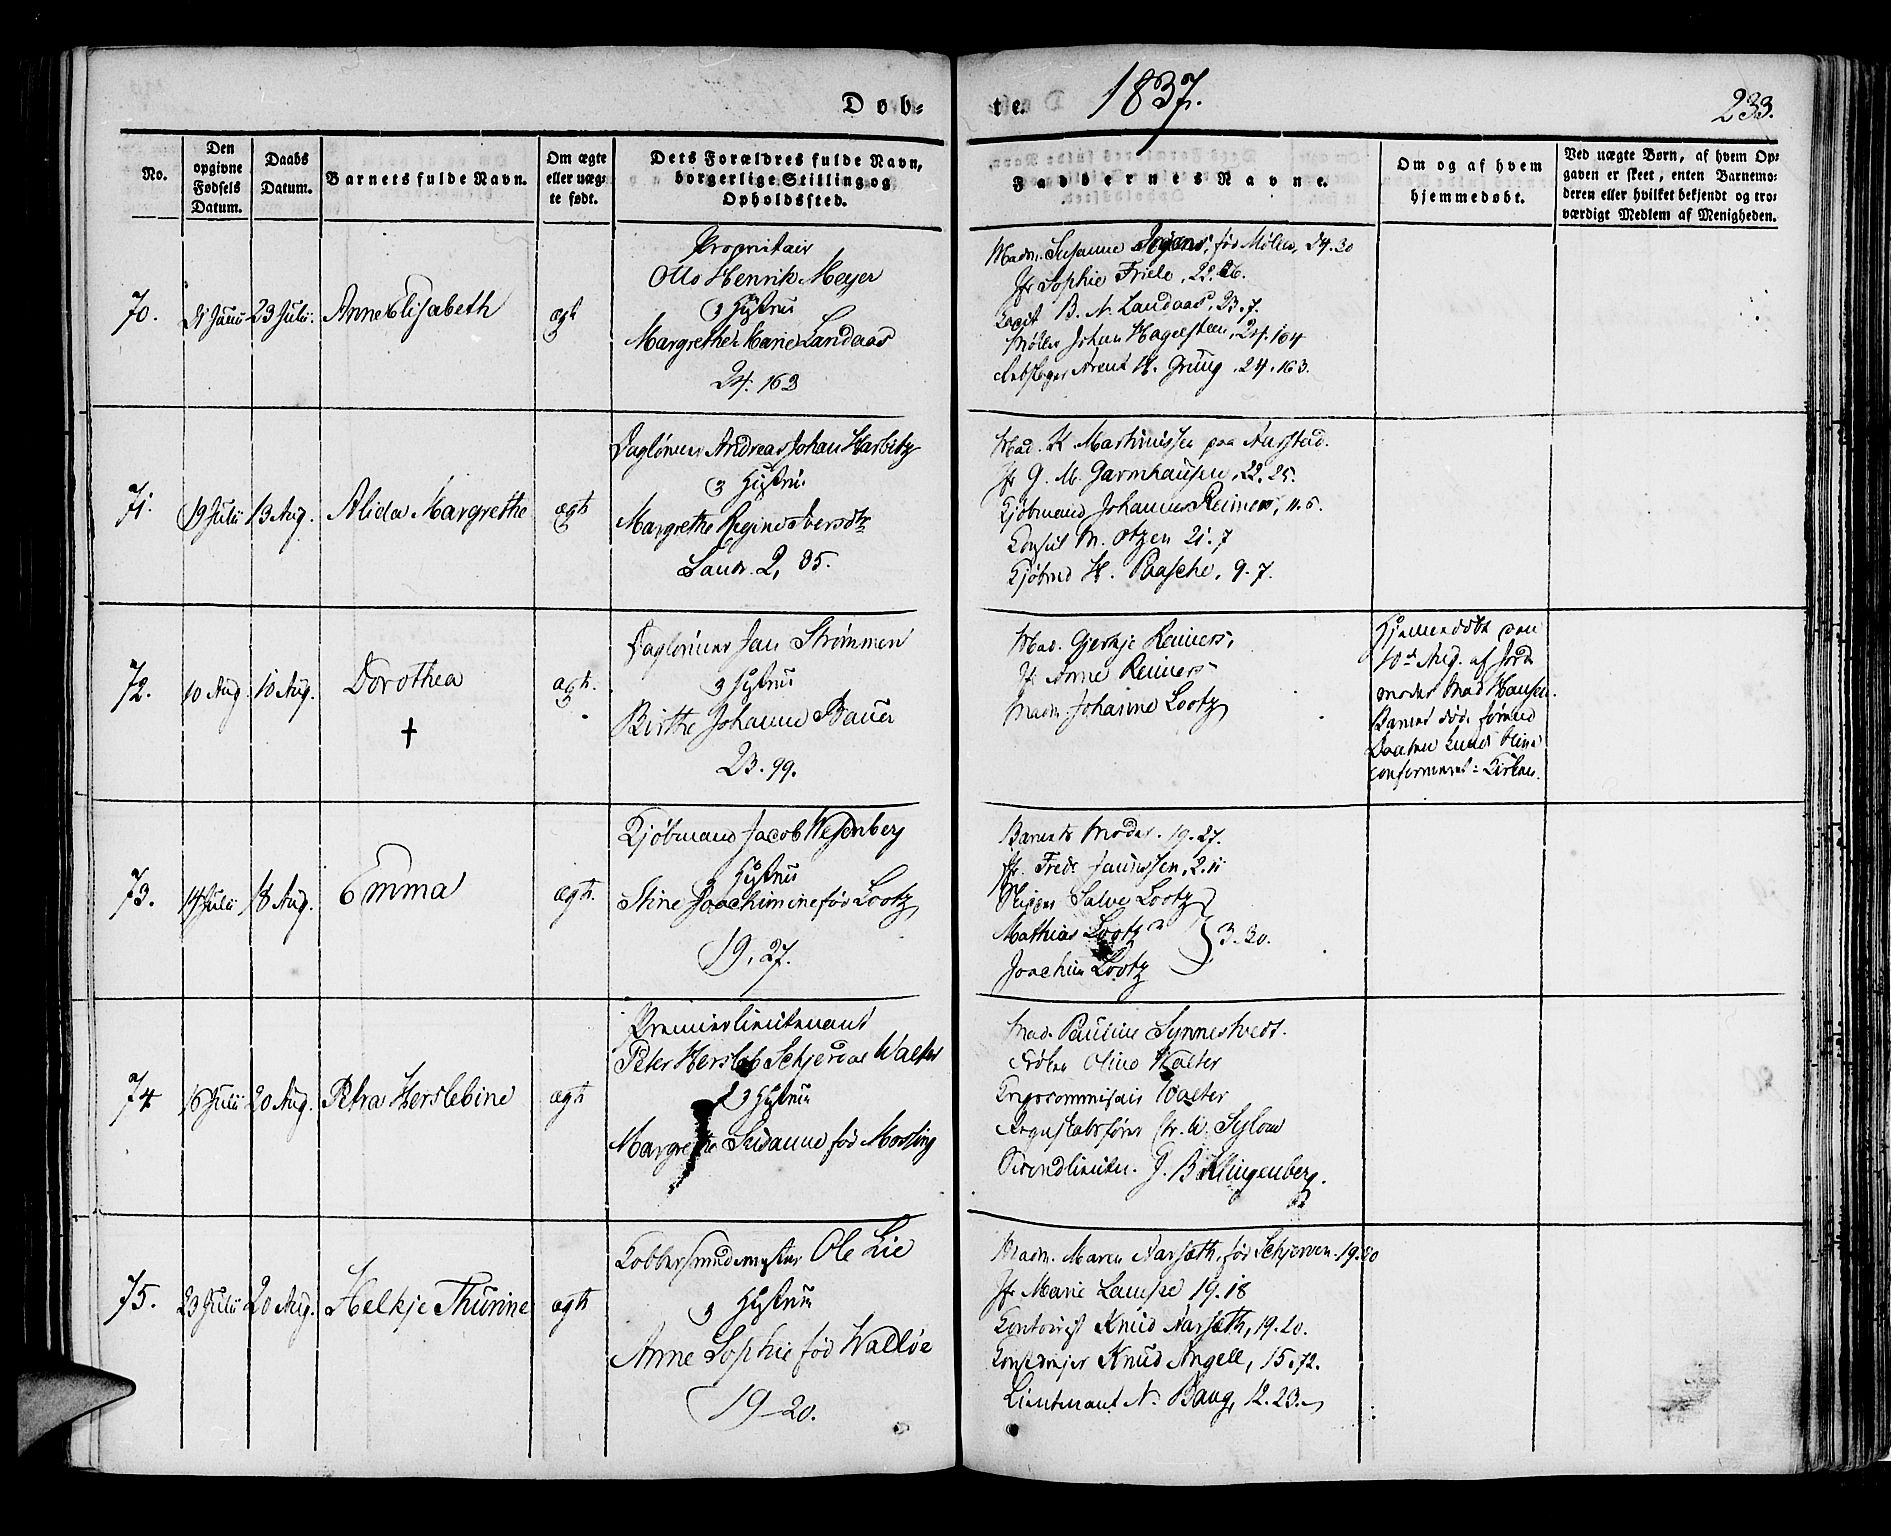 Døb-
te.
1837.
233.
No.
Den opgivne Fødsels Datum.
Daabs Datum.
Barnets fulde Navn.
Om ægte eller uægte født.
Dets Forældres fulde Navn, borgerlige Stilling og Opholdssted.
Faddernes Navne.
Om og af hvem hjemmedøbt.
Ved uægte Børn, af hvem Opgaven er skeet, enten Barnemoderen eller hvilket bekjendt og troværdigt Medlem af Menigheden.
70.
23 Julii
Anne Elisabeth
ægte
Proprietair
Otto Henrik Meyer
& Hustrue
Margrethe Marie Landaas
24. 163
Madm. Susanne født Møller, 24.30
Jfr Sophie Friele, 22.26.
B. N. Landaas, 23.7.
Johan Hagelsteen, 24.164
Arent H. Grung. 24.163.
71.
19 Julii
13 Aug.
Alida Margrethe
ægte
Dagleiner Andreas Johan Harbitz
& Hustrue
Margrethe Regine Iversdtr
2, 35.
Mad. K. Martinussen paa Aarstad.
Jfr G. M. Garmhausen, 22.25.
Kjøbmand Johannes Reimers, 11.6.
Consul M. Otzen 21.7
Kjøbmd H. Paasche, 9.7.
72.
10 Aug.
10 Aug.
Dorothea
†
ægte.
Dagleiner Jan Strømmen
& Hustrue
Birthe Johanne Bauer
23.99.
Mad. Gjertje Reimers,
Jfr Anne Reimers
Madm. Johanne Lootz
Hjemmedøbt den
10de Aug. af Jord
moder Mad Hansen.
Barnet døde førend
Daaben
confirmeret i Kirken.
73.
14 Julii
18 Aug.
Emma
ægte.
Kjøbmand Jacob Wesenberg
Hustrue
Stine Joachimine født Lootz
19.27.
Barnets Moder. 19.27.
Jfr. Fredr. Janussen, 2.11
Skipper Salve Lootz
Mathias Lootz
3.30.
Joachim Lootz
74
16 Julii
20 Aug.
Petra Herslebine
ægte
Premierlieutenant
Peter Hersleb Schjerdal Walter
& Hustrue
Margrethe Susanne født Mossing
Mad. Pauline Synnestvedt.
Frøken Oline Walter
Krigscommisair Walter
Regnskabsfører Chr. W. Sylow
Secondlieuten. J. B. Klingenberg.
75.
23 Julii
20 Aug.
Helkje Thurine
ægte
Kobbersmedmester Ole Lie
& Hustrue
Anne Sophie født Walløe
19-20.
Madm. Maren Aarsæth, født Schjerven. 19.20
Jfr Marie Lampe 19.18
Contorist Knud Aarsæth, 19.20.
Knud Angell, 15.72.
Lieutenant N. Baug, 12.23.